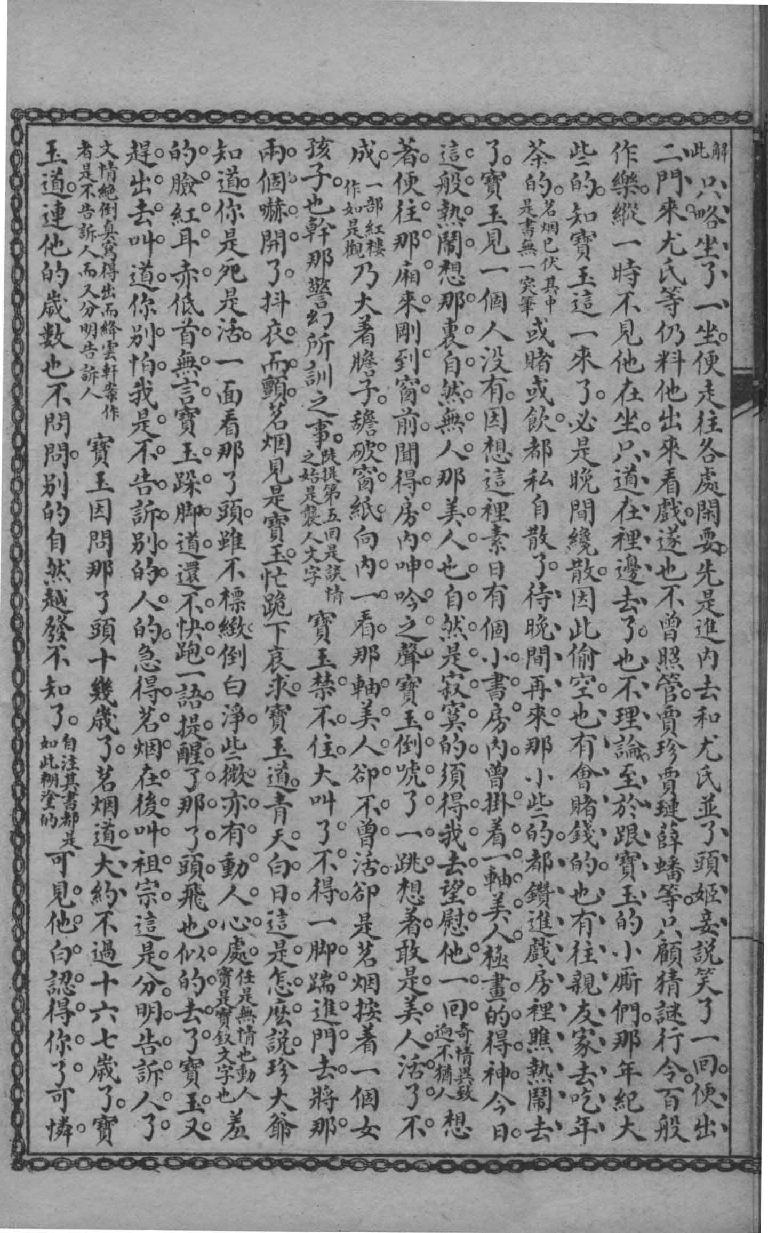 此解只略坐了一坐便走往各處閑耍先是進內去和尤氏並了頭姬妾説笑了一回便出
二門來尤氏等仍料他出來看戲遂也不曾照管賈珍賈璉薛蟠等只顧猜謎行令百般
作樂縱一時不見他在坐只道在裡邊去了也不理論至於跟寶玉的小厮們那年紀大
些的知寶玉這一來了必是晚間纔散因此偷空也有會賭錢的也有往親友家去吃年
茶的茗烟已伏其中是書無一突筆或賭或飲都私自散了待晚間再來那小些的都鑽進戲房裡瞧熱鬧去
了寶玉見一個人没有因想這裡素日有個小書房內曾掛着一軸美人極畫的得神今日
這般熱鬧想那裏自然無人那美人也自然是寂寞的須得我去望慰他一回奇情異致迥不猶人想
著便往那廂來剛到窗前聞得房內呻吟之聲寶玉倒唬了一跳想著敢是美人活了不
成一部紅樓作如是觀乃大着膽子䑛破窗紙向內一看那軸美人卻不曾活卻是茗烟按着一個女
孩子也幹那警幻所訓之事陡提第五回是誤情之始是襲人文字寶玉禁不住大叫了不得一脚踹進門去將那
兩個嚇開了抖衣而顫茗烟見是寶玉忙跪下哀求寶玉道青天白日這是怎麽説珍大爺
知道你是死是活一面看那了頭雖不標緻倒白淨些微亦有動人心處任是無情也動人寶是寶釵文字也羞
的臉紅耳赤低首無言寶玉跺脚道還不快跑一語提醒了那了頭飛也似的去了寶玉又
趕出去叫道你别怕我是不告訴别的人的急得茗烟在後叫祖宗這是分明告訴人了
文情絶倒臭寫得出而絳雲軒業作者是不告訴人而又分明告訴人寶玉因問那了頭十幾歲了茗烟道大約不過十六七歲了寶
玉道連他的歲数也不問問别的自然越發不知了自注其書都是如此糊塗的可見他白認得你了可憐